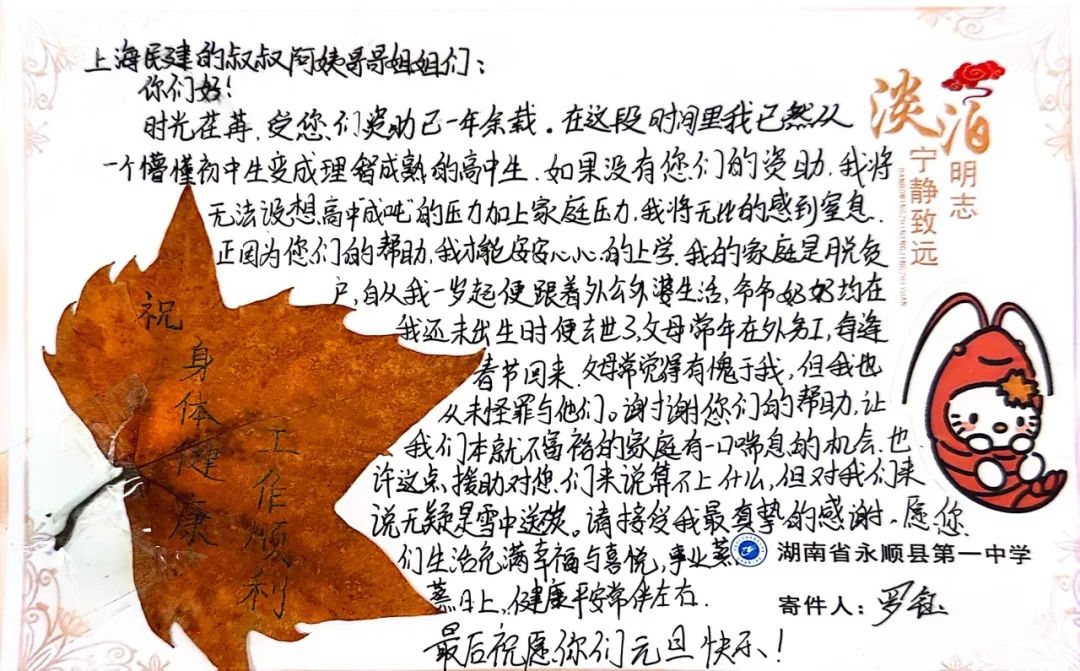 上海民建的叔叔阿姨哥哥姐姐们：
你们好！
时光荏苒，受您们资助已一年余载。在这段时间里我已然从
一个懵懂初中生变成理智成熟的高中生．如果没有您们的资助，我将
无法设想高中"成吨"的压力加上家庭压力，我将无比的感到窒息．
正因为您们的帮助，我才能安安心心的上学．我的家庭是脱贫
户，自从我一岁起便跟着外公外婆生活，爷爷奶奶均在
我还未出生时便去世了父母常年在外务工，每逢
春节回来．父母常觉得有愧于我，但我也
从未怪罪与他们。谢谢您们的帮助．让
我们本就不富裕的家庭有一口喘息的机会．也
许这点援助对您们来说算不上什么，但对我们来
说无疑是雪中送炭。请接受我最真挚的感谢。愿您
们生活充满幸福与喜悦，事业蒸
蒸日上，健康平安常伴左右．
最后祝愿你们元旦快乐！
祝
身体健康
工作顺利
淡泊
明志
宁静致远
DANBOMINGZHININGJINGZHIYUAN
湖南省永顺县第一中学
寄件人：罗钰